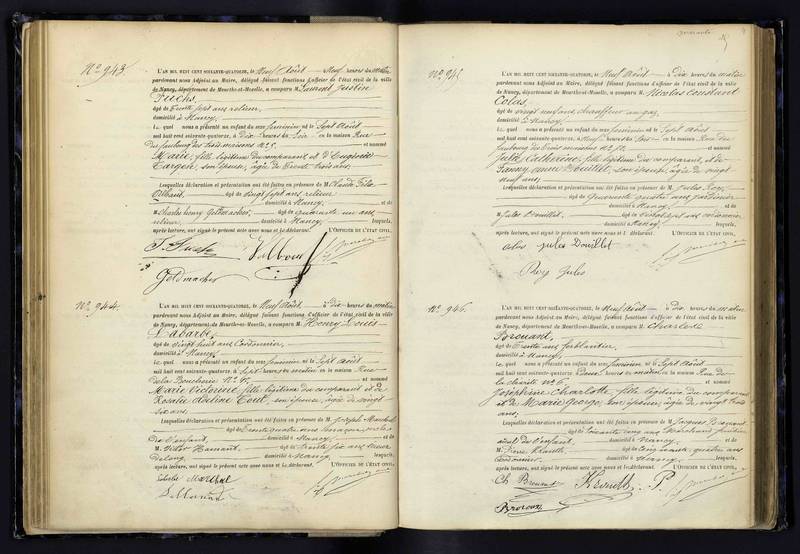 N° 943.
L'AN MIL HUIT CENT SOIXANTE-QUATORZE, le Neuf Août Neuf heures du matin
pardevant nous Adjoint au Maire, délégué faisant fonctions d'officier de l'état civil de la ville
de Nancy, département de Meurthe-et-Moselle, a comparu M. Laurent Justin
Fuchs,
âgé de Trente sept ans relieur
domicilié à Nancy
lequel nous a présenté un enfant du sexe féminin né le Sept Août
mil huit cent soixante-quatorze, à Dix heures du Soir en la maison Rue
du faubourg des trois maisons N° 5. et nommé
Marie, fille légitime du comparant et d'Eugénie
son épouse, âgée de Trente trois ans,
Lesquelles déclaration et présentation ont été faites en présence de M. Claude Félix
âgé de vingt sept ans relieur
domicilié à Nancy et de
M. Charles henry Goldmacher âgé de quarante un ans
relieur domicilié à Nancy lesquels,
après lecture, ont signé le présent acte avec nous et le déclarant. L'OFFICIER DE L'ÉTAT CIVIL,
Goldmacher
N° 944.
L'AN MIL HUIT CENT SOIXANTE-QUATORZE, le Neuf Août à Dix heures du matin
pardevant nous Adjoint au Maire, délégué faisant fonctions d'officier de l'état civil de la ville
de Nancy, département de Meurthe-et-Moselle, a comparu M. Henry Louis
Labarbe,
âgé de vingt huit ans Cordonnier
domicilié à Nancy
lequel nous a présenté un enfant du sexe féminin né le Sept Août
mil huit cent soixante-quatorze, à Sept heures du matin en la maison Rue
de la Boucherie N° et nommé
Marie Victorine, fille légitime du comparant et de
Rosalie Adeline son épouse, âgée de vingt
six ans,
Lesquelles déclaration et présentation ont été faites en présence de M. Joseph Marchal
âgé de Trente quatre ans
de l'enfant, domicilié à Nancy et de
M. Victor âgé de Trente six ans
domicilié à Nancy lesquels,
après lecture, ont signé le présent acte avec nous et le déclarant. L'OFFICIER DE L'ÉTAT CIVIL,
Marchal
N° 945.
L'AN MIL HUIT CENT SOIXANTE-QUATORZE, le Neuf Août à Dix heures du matin
pardevant nous Adjoint au Maire, délégué faisant fonctions d'officier de l'état civil de la ville
de Nancy, département de Meurthe-et-Moselle, a comparu M. Nicolas Constant
Colas,
âgé de vingt neuf ans chauffeur au gaz,
domicilié à Nancy,
lequel nous a présenté un enfant du sexe féminin né le Sept Août
mil huit cent soixante-quatorze, à Neuf heures du Soir en la maison Rue du
faubourg des Trois maisons N° et nommé
Julie Catherine, fille légitime du comparant, et de
Fanny Anne Douillet, son épouse, âgée de vingt
neuf ans,
Lesquelles déclaration et présentation ont été faites en présence de M. Jules Roy,
âgé de Quarante quatre ans jardinier
domicilié à Nancy et de
M. Jules Douillet, âgé de
domicilié à Nancy, lesquels,
après lecture, ont signé le présent acte avec nous et le déclarant. L'OFFICIER DE L'ÉTAT CIVIL,
Colas Jules Douillet
Roy Jules
N° 946.
L'AN MIL HUIT CENT SOIXANTE-QUATORZE, le Neuf Août à Dix heures du matin
pardevant nous Adjoint au Maire, délégué faisant fonctions d'officier de l'état civil de la ville
de Nancy, département de Meurthe-et-Moselle, a comparu M. Charles
Brouant,
âgé de Trente ans ferblantier
domicilié à Nancy,
lequel nous a présenté un enfant du sexe féminin, né le Sept Août
mil huit cent soixante-quatorze heures du matin en la maison Rue de
la charité N° 6 et nommé
Joséphine Charlotte, fille légitime du comparant
et de Marie George, son épouse, âgée de vingt trois
ans,
Lesquelles déclaration et présentation ont été faites en présence de M. Jacques Brouant
âgé de soixante cinq ans
aïeul de l'enfant, domicilié à Nancy et de
M. Pierre âgé de Cinquante quatre ans
Cordonnier domicilié à Nancy, lesquels,
après lecture, ont signé le présent acte avec nous et le déclarant. L'OFFICIER DE L'ÉTAT CIVIL,
Ch Brouant P